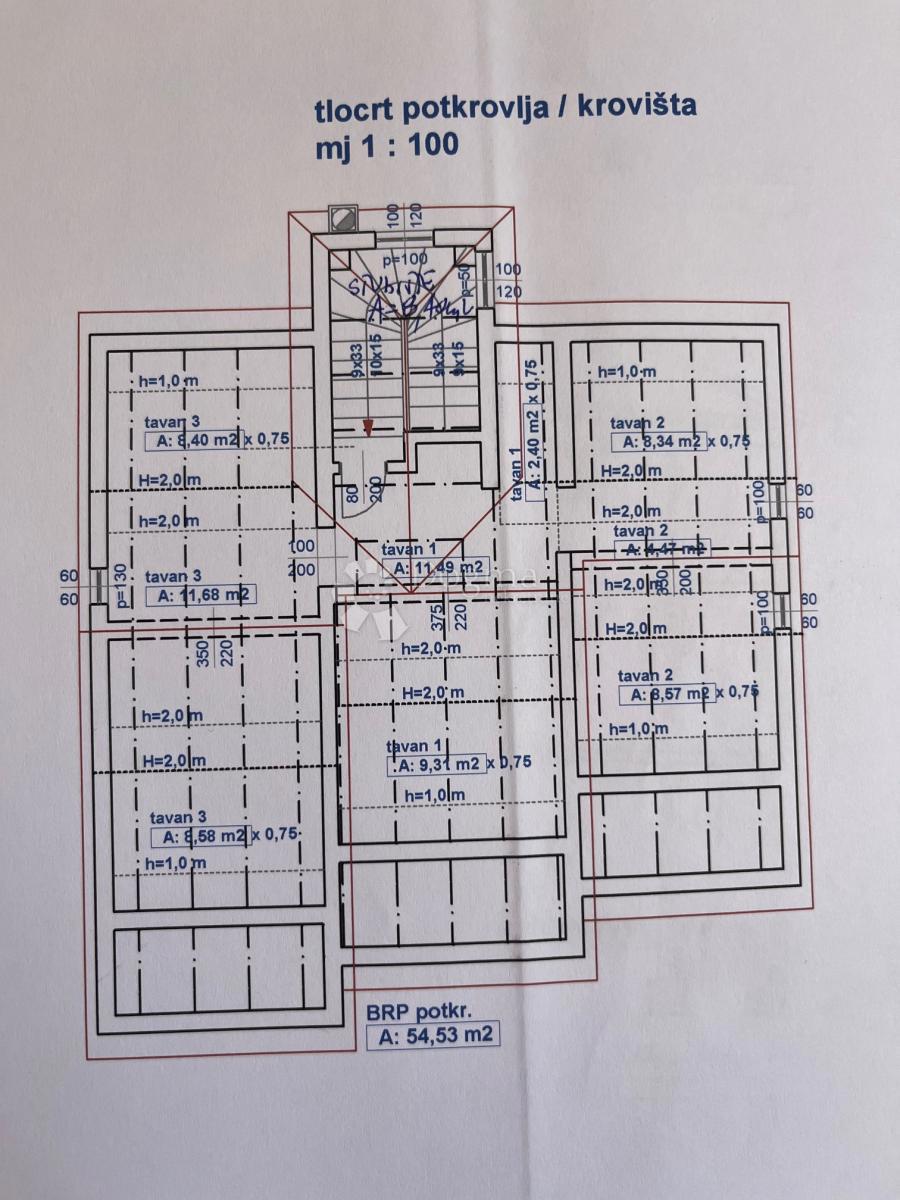 tlocrt potkrovlja / krovišta
mj 1 : 100
100
120
p=100
p=50
100
120
9x33
10x15
9x33
9x15
h=1,0 m
tavan 3
A: 8,40 m2 x 0,75
H=2,0 m
h=2,0 m
tavan 1
A: 2,40 m2 x 0,75
h=1,0 m
tavan 2
A: 8,34 m2 x 0,75
H=2,0 m
h=2,0 m
p=100
60
60
80
200
100
200
tavan 2
A: 4,47 m2
tavan 1
A: 11,49 m2
60
60
p=130
tavan 3
A: 11,68 m2
h=2,0 m
200
p=100
60
60
375
220
H=2,0 m
350
220
h=2,0 m
tavan 2
A: 8,57 m2 x 0,75
H=2,0 m
h=2,0 m
h=1,0 m
tavan 1
A: 9,31 m2 x 0,75
H=2,0 m
h=1,0 m
tavan 3
A: 8,58 m2 x 0,75
h=1,0 m
BRP potkr.
A: 54,53 m2